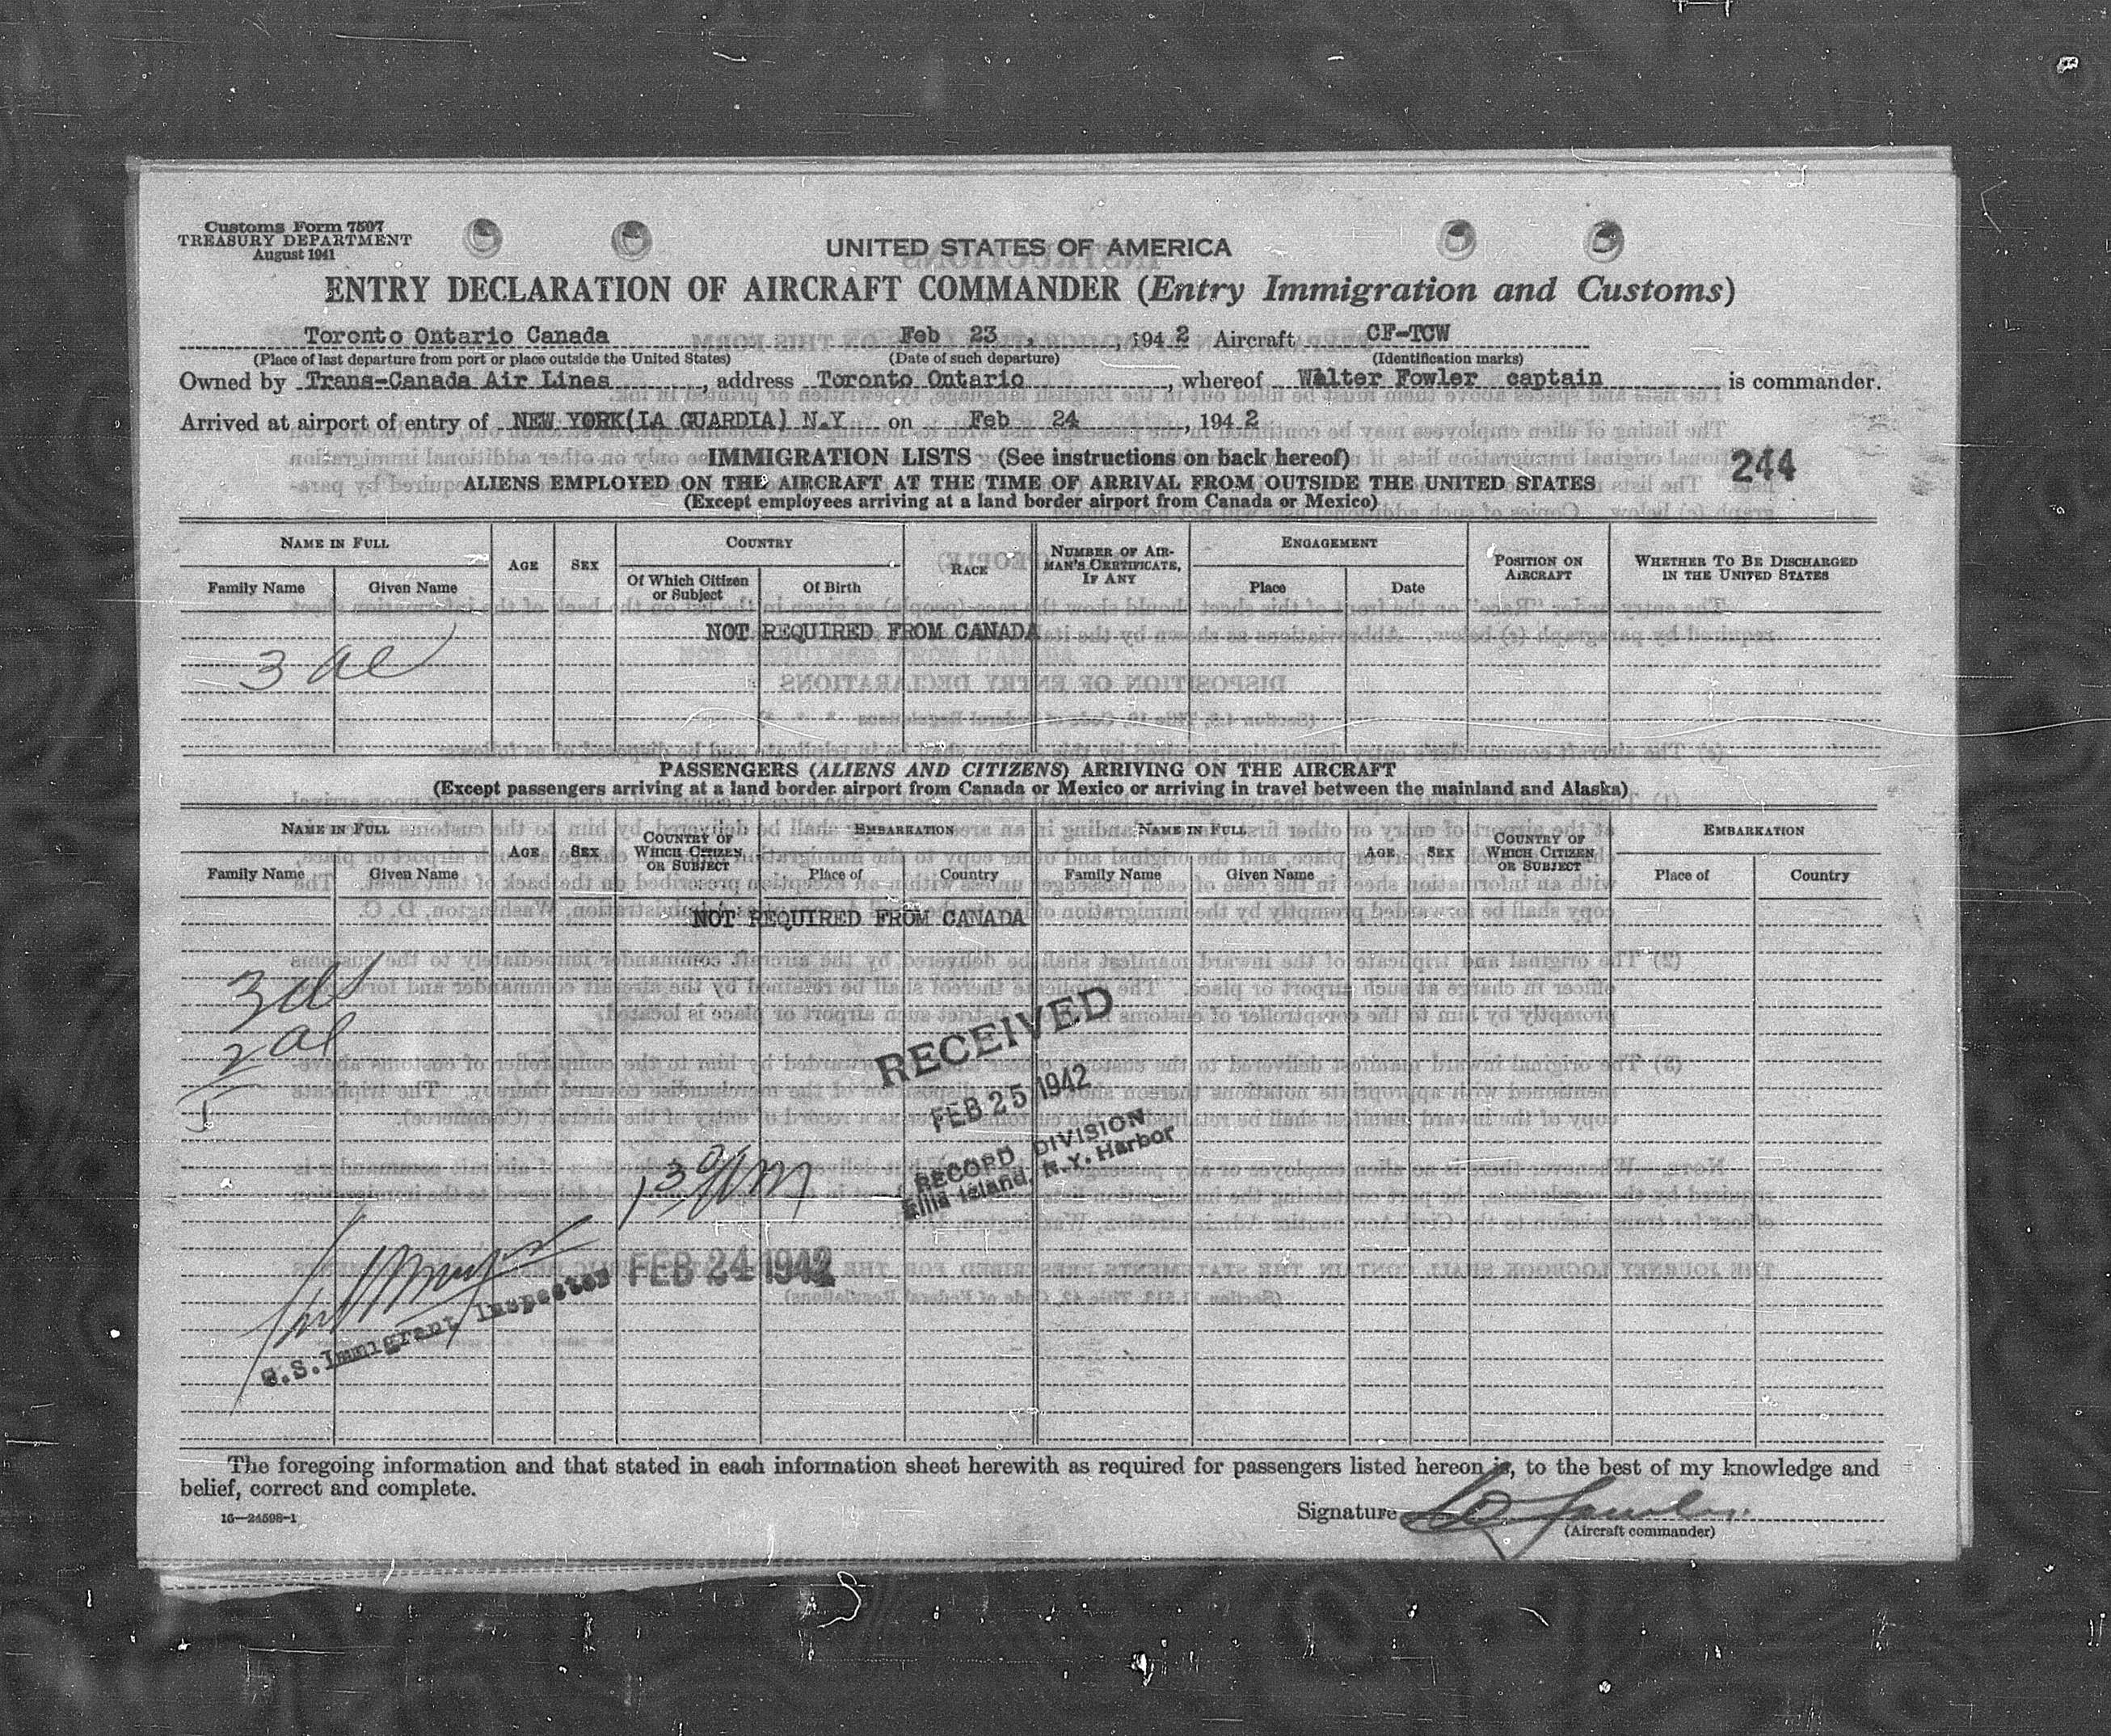 Customs Form 7507
TREASURY DEPARTMENT
August 1941
UNITED STATES OF AMERICA
ENTRY DECLARATION OF AIRCRAFT COMMANDER (Entry Immigration and Customs)
Toronto Ontario Canada Feb 23, , 194 2 Aircraft CF-TCW
(Place of last departure from port or place outside the United States) (Date of such departure) (Identification marks)
Owned by Trans-Canada Air Lines, address Toronto Ontario, whereof Walter Fowler captain is commander.
Arrived at airport of entry of NEW YORK(LA GUARDIA) N.Y on Feb 24, 194 2
IMMIGRATION LISTS (See instructions on back hereof)
244
ALIENS EMPLOYED ON THE AIRCRAFT AT THE TIME OF ARRIVAL FROM OUTSIDE THE UNITED STATES
(Except employees arriving at a land border airport from Canada or Mexico)
NAME IN FULL AGE SEX COUNTRY RACE NUMBER OF AIRMAN'S CERTIFICATE, IF ANY ENGAGEMENT POSITION ON AIRCRAFT WHETHER TO BE DISCHARGED IN THE UNITED STATES
Family Name Given Name Of Which Citizen or Subject Of Birth Place Date
NOT REQUIRED FROM CANADA
3 al
PASSENGERS (ALIENS AND CITIZENS) ARRIVING ON THE AIRCRAFT
(Except passengers arriving at a land border airport from Canada or Mexico or arriving in travel between the mainland and Alaska)
NAME IN FULL AGE SEX COUNTRY OF WHICH CITIZEN OR SUBJECT EMBARKATION NAME IN FULL AGE SEX COUNTRY OF WHICH CITIZEN OR SUBJECT EMBARKATION
Family Name Given Name Place of Country Family Name Given Name Place of Country
NOT REQUIRED FROM CANADA
2 al
5
RECEIVED
FEB 25 1942
RECORD DIVISION
Ellis Island, N.Y. Harbor
FEB 24 1942
U.S. Immigrant Inspector
The foregoing information and that stated in each information sheet herewith as required for passengers listed hereon is, to the best of my knowledge and
belief, correct and complete.
16—24598-1
Signature
(Aircraft commander)